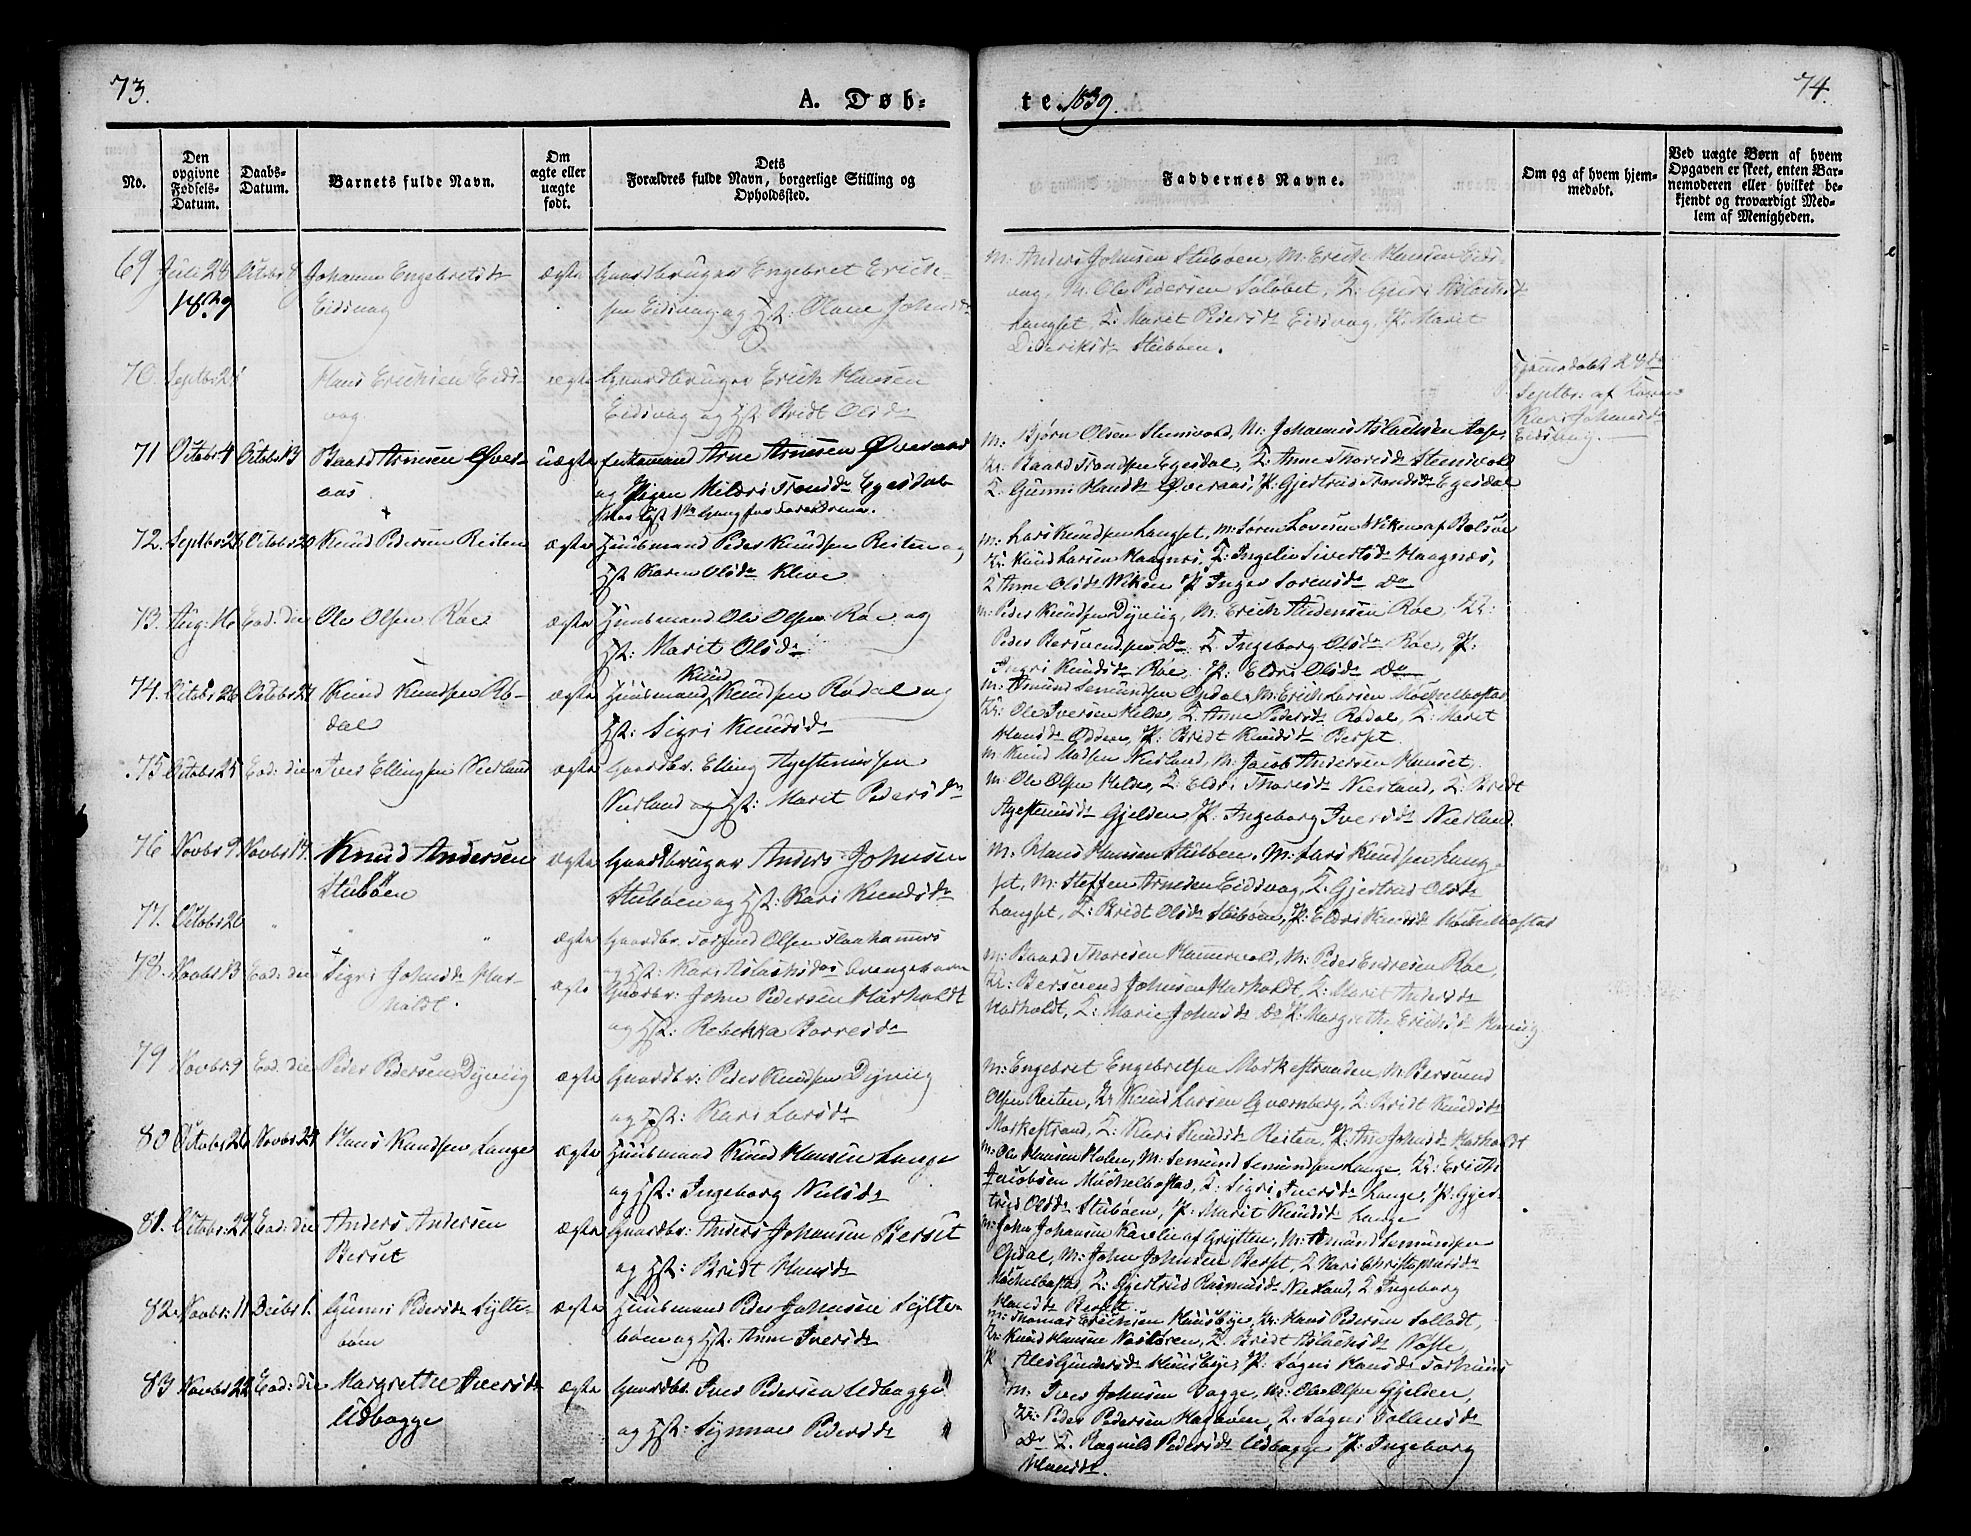 73.
A. Døb-
te. 1839.
74.
No.
Den opgivne Fødsels-Datum.
Daabs-Datum.
Barnets fulde Navn.
Om ægte eller uægte født.
Dets Forældres fulde Navn, borgerlige Stilling og Opholdssted.
Faddernes Navne.
Om og af hvem hjem-medøbt.
Ved uægte Børn af hvem Opgaven er skeet, enten Bar-nemoderen eller hvilket be-kjendt og troværdigt Med-lem af Menigheden.
69 Juli 28 Octobr Johanne Engebretsd ægte Gaardbruger Engebret Erich-
Eidsvag sen Eidsvag og Hst: Olave Johnsd
M: Anders Johnsen Stubøen, M: Erich Hansen Eids-
vag, M: Ole Pedersen
Langset, T: Maret Pedersd Eidsvag, P: Marit
Dideriksd Stubøen.
70. Septbr 24 Hans Erichsen Eids- ægte Gaardbruger Erich Hansen
vag. Eidsvag og Hst: Bridt Olsd
Hjemmedøbt 28de
Septbr: af
Kari Johansd
Eidsvag.
71 Octobr 4 Octobr 13 Baard Arnesen Øver- uægte Arne Arnesen Øveraas
aas. og Pigen Mildri Tronsd Egesdal
M: Bjørn Olsen Stensvold, M: Johannes Aslachsen Aase,
Baard Tronsen Egesdal, T: Anne Thoresd Stensvold
T: Gunni Hansd Øveraas, P: Gjertrud Tronsd Egesdal
72. Septbr 26 Octobr 20 Knud Pedersen Reiten ægte Huusmand Peder Knudsen Reiten og
Hst: Karen Olsd Klive
M: Lars Knudsen Langset, M: Søren Wiken af Bolsøe
Knud Larsen Haagnæs, T: Ingelev Sivertsd Haagnæs,
T Anne Olsd Wiken P Inger Sorensd Do
73. Aug: 16 Eod: die Ole Olsen Røe ægte Huusmand Ole Olsen Røe og
Hst: Marit Olsd
M: Peder Knudsen Dyrviig, M: Erich Andersen Røe,
Peder Bersvendsen Do T Ingeborg Olsd Røe, P:
Ingri Knudsd Røe, P: Eldri Olsd Do
74. Octobr 26 Octobr 27 Knud Knudsen Rø- ægte Huusmand Knud Knudsen Rødal og
dal Hst: Sigri Knudsd
M: Amund Semundsen Opdal, M: Erich Larsen Mochelbostad
Ole Iversen Helde, T: Anne Pedersd Rødal, T: Marit
Hansd Odden, P: Bridt Knudsd Berset
75 Octobr 25 Eod: die Iver Ellingsen Nerland ægte Gaardbr. Elling
Nerland og Hst: Marit Pedersd
M: Knud Madsen Nerland, M: Jacob Andersen
M: Ole Olsen Helde, T: Eldri Thoresd Nerland, T: Bridt
Gjelden P: Ingeborg Iversd Nerland.
76 Novbr 9 Novbr 17. Knud Andersen ægte Gaardbruger Anders Johnsen
Stubøen Stubøen og Hst: Kari Knudsd
M. Hans Hansen Stubøen, M: Lars Knudsen Lang-
set, M: Steffen Arnesen Eidsvag, T: Gjertrud Olsd
Langset, T: Bridt Olsd Stubøen, P: Eldri Knudsd Mochelbostad
77. Octobr 26 " " " ægte Gaardbr. Torfind Olsen
og Hst: Kari Aslachsd
78. Novbr 13 Eod: die Sigri Johnsd Har- ægte Gaardbr: John Pedersen Harholdt
holdt. og Hst: Rebekka Baaresd
M: Baard Thoresen Hammervold, M: Peder Endresen Røe,
Bersvend Johnsen Harholdt, T: Marit Andersd
Harholdt, T: Marie Johnsd Do P: Margrethe Erichsd
79 Novbr: 9 Eod: die Peder Pedersen Dyrviig ægte Gaardbr: Peder Knudsen Dyrviig
og Hst: Kari Larsd
M: Engebret Engebretsen Morkestranden, M: Bersvend
Olsen Reiten, Knud Larsen Qværnberg, T: Bridt Knudsd
Morkestrand, T: Kari Knudsd Reiten, P: Ane Johnsd Harholdt
80 Octobr 26 Novbr 24 Hans Knudsen Lange ægte Huusmand Knud Hansen Lange
og Hst: Ingeborg Nielsd
M: Ole Hansen Holen, M: Semund Semundsen Lange, Erich
Jacobsen Mochelbostad, T: Sigri Iversd Lange, P: Gjer-
trud Olsd Stubøen, P: Marit Knudsd Lange
81. Octobr: 27 Eod: die Anders Andersen ægte Gaardbr: Anders Johansen Berset
Berset og Hst: Bridt Hansd
M: John Johansen af Grytten, M: Amund Semundsen
Opdal, M: John Johnsen Berset, T Kari Christophersd
Mochelbostad, T: Gjertrud Rasmusd Nerland, T Ingeborg
Hansd Berset
82. Novbr: 11 Decbr 1. Gunni Pedersd Sylte- ægte Huusmand Peder Johnsen Sylte-
bøen bøen og Hst: Anne Iversd
M: Thomas Erichsen Huusbye, Hans Pedersen
Knud Hansen T. Bridt Aslachsd Nøste,
P Ales Gundersd Huusbye, P: Søgni Hansd
83 Novbr: 22 Eod: die Margrethe Iversd ægte Gaardbr. Iver Pedersen Udbogge
Udbogge og Hst: Synnøe Pedersd
M: Iver Johnsen Bogge, M: Ole Olsen Gjelden,
Peder Pedersen Hagbøen, T. Søgni
Do T. Ragnild Pedersd Udbogge P: Ingeborg
Hansd.